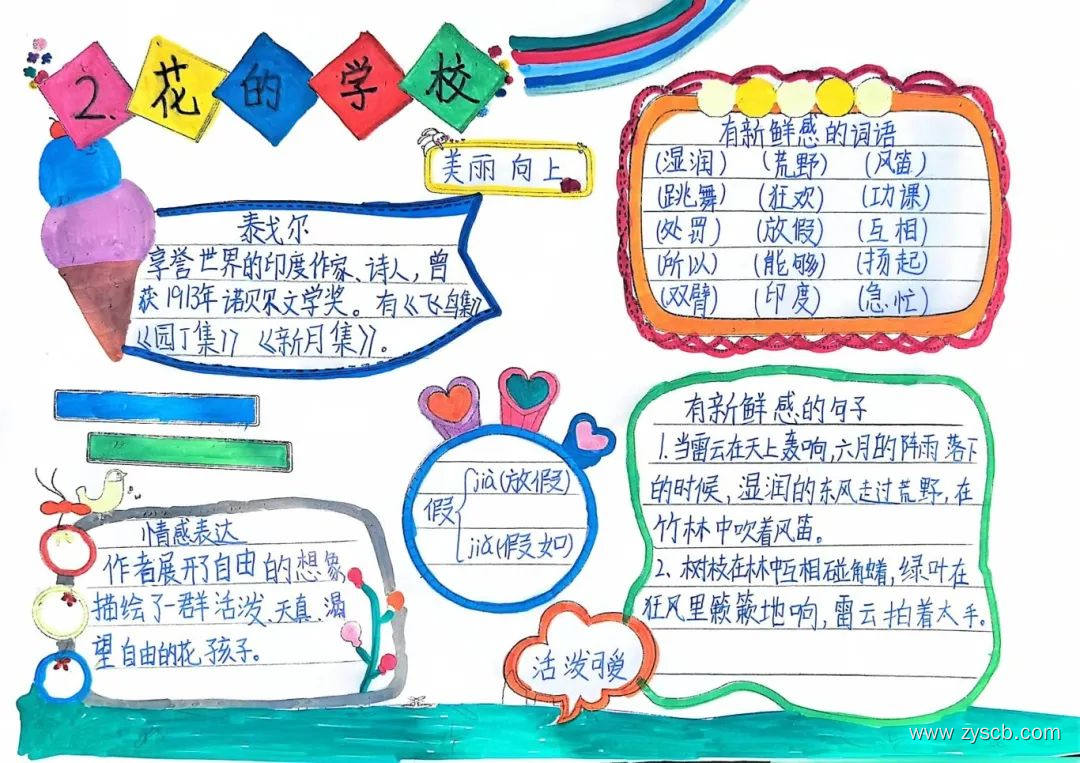 2. 花的学校
美丽向上
泰戈尔
享誉世界的印度作家、诗人,曾
获1913年诺贝尔文学奖。有《飞鸟集》
《园丁集》《新月集》。
有新鲜感的词语
(湿润) (荒野) (风笛)
(跳舞) (狂欢) (功课)
(处罚) (放假) (互相)
(所以) (能够) (扬起)
(双臂) (印度) (急忙)
假
jià(放假)
jiǎ(假如)
有新鲜感的句子
1.当雷云在天上轰响,六月的阵雨落下
的时候,湿润的东风走过荒野,在
竹林中吹着风笛。
2、树枝在林中互相碰触着,绿叶在
狂风里簌簌地响,雷云拍着大手。
情感表达
作者展开了自由的想象
描绘了一群活泼、天真、渴
望自由的花孩子。
活泼可爱
www.zyscb.com